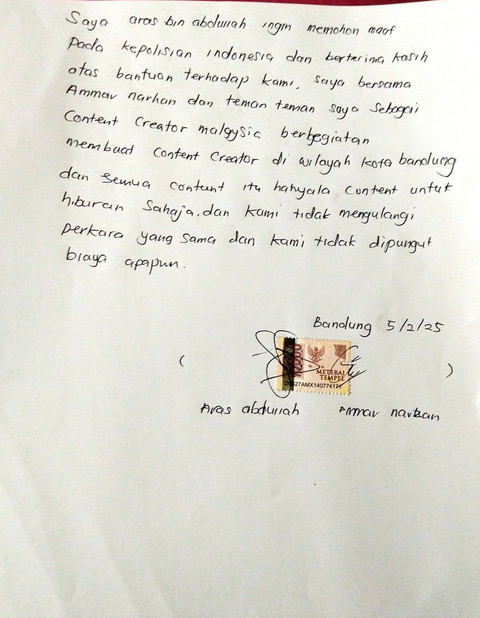 Saya aras bin abdullah ingin memohon maaf
Pada kepolisian indonesia dan berterina kasih
atas bantuan terhadap kami, saya bersama
Ammar narhan dan teman teman saya sebagai
Content Creator malaysia berkegiatan
membuat content Creator di wilayah kota bandung
dan semua content itu hanyala content untuk
hiburan Sahaja, dan kami tidak mengulangi
perkara yang sama dan kami tidak dipungut
biaya apapun.
Bandung 5/2/25
( )
METERAI
TEMPEL
Aras abdullah Ammar narhan